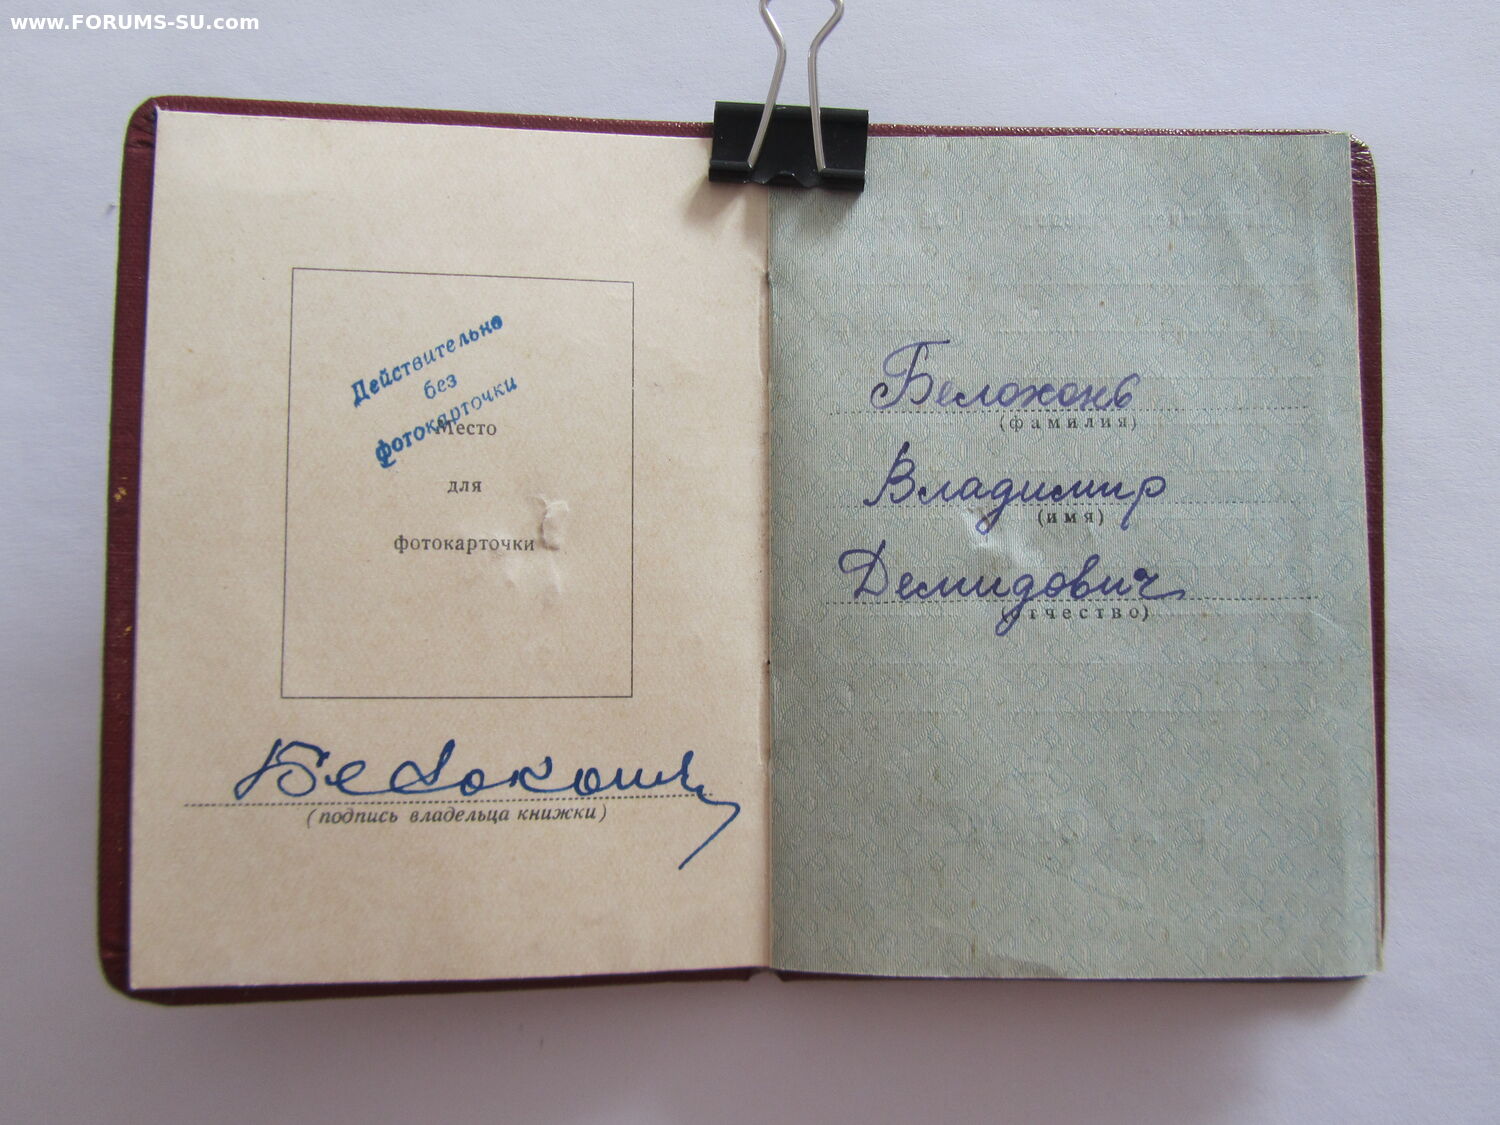 www.FORUMS-SU.com
Действительно
без
фотокарточки
Место
для
фотокарточки
Белоконь
(подпись владельца книжки)
Белоконь
(фамилия)
Владимир
(имя)
Демидович
(отчество)